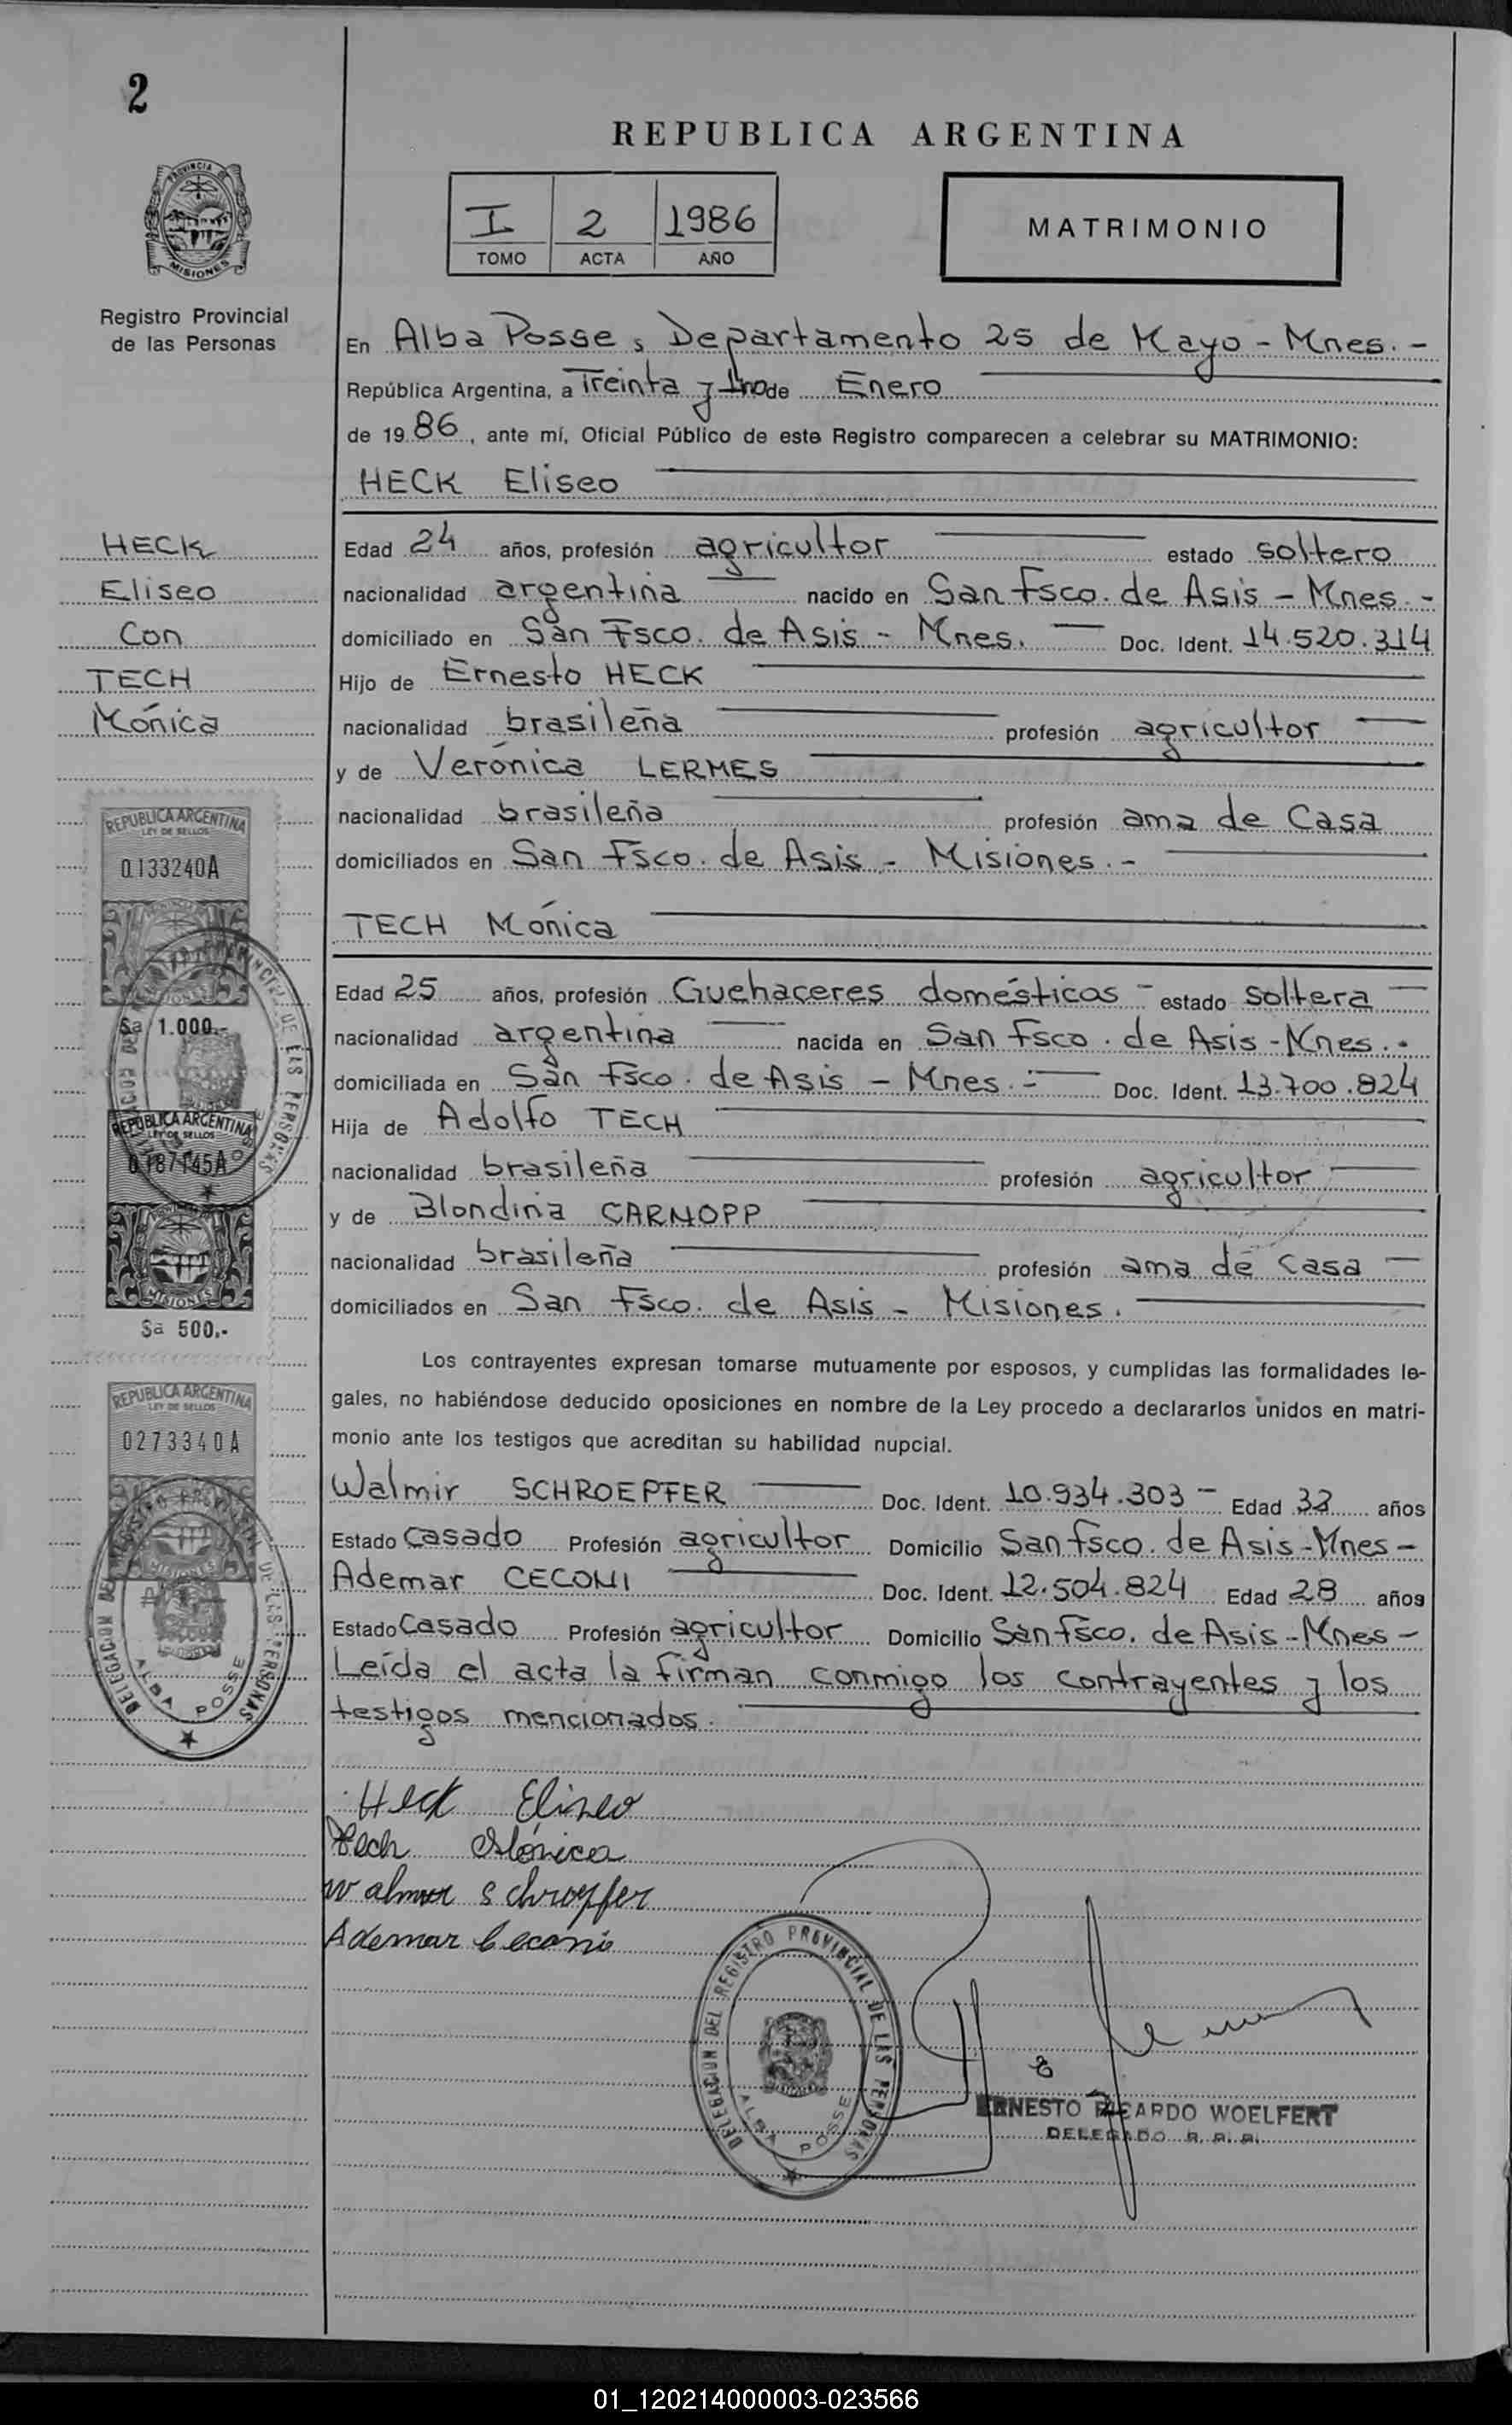 2
REPUBLICA ARGENTINA
PROVINCIA DE
MISIONES
I 2 1986
TOMO ACTA AÑO
MATRIMONIO
Registro Provincial
de las Personas
En Alba Posse, Departamento 25 de Mayo - Mnes. -
República Argentina, a Treinta y Uno de Enero
de 1986, ante mí, Oficial Público de este Registro comparecen a celebrar su MATRIMONIO:
HECK Eliseo
HECK
Eliseo
Con
TECH
Mónica
Edad 24 años, profesión agricultor estado soltero
nacionalidad argentina nacido en San Fsco. de Asis - Mnes. -
domiciliado en San Fsco. de Asis - Mnes. Doc. Ident. 14.520.314
Hijo de Ernesto HECK
nacionalidad brasileña profesión agricultor
y de Verónica LERMES
nacionalidad brasileña profesión ama de Casa
domiciliados en San Fsco. de Asis - Misiones. -
TECH Mónica
Edad 25 años, profesión Guehaceres domésticos - estado soltera
nacionalidad argentina nacida en San Fsco. de Asis - Mnes. -
domiciliada en San Fsco. de Asis - Mnes. - Doc. Ident. 13.700.824
Hija de Adolfo TECH
nacionalidad brasileña profesión agricultor
y de Blondina CARNOPP
nacionalidad brasileña profesión ama de casa
domiciliados en San Fsco. de Asis - Misiones.
REPUBLICA ARGENTINA
LEY DE SELLOS
0133240A
MISIONES
Sa 1.000.-
REPUBLICA ARGENTINA
LEY DE SELLOS
0187145A
MISIONES
Sa 500.-
REPUBLICA ARGENTINA
LEY DE SELLOS
0273340A
MISIONES
ALBA POSSE
Los contrayentes expresan tomarse mutuamente por esposos, y cumplidas las formalidades le-
gales, no habiéndose deducido oposiciones en nombre de la Ley procedo a declararlos unidos en matri-
monio ante los testigos que acreditan su habilidad nupcial.
Walmir SCHROEPFER Doc. Ident. 10.934.303 - Edad 33 años
Estado Casado Profesión agricultor Domicilio San Fsco. de Asis - Mnes -
Ademar CECONI Doc. Ident. 12.504.824 Edad 28 años
Estado Casado Profesión agricultor Domicilio San Fsco. de Asis - Mnes -
Leída el acta la firman conmigo los contrayentes y los
testigos mencionados.
Heck Eliseo
Tech Mónica
Walmir Schroepfer
Ademar Ceconi
DELEGACION DEL REGISTRO PROVINCIAL DE LAS PERSONAS
ALBA POSSE
ERNESTO RICARDO WOELFERT
DELEGADO R. P. P.
01_120214000003-023566